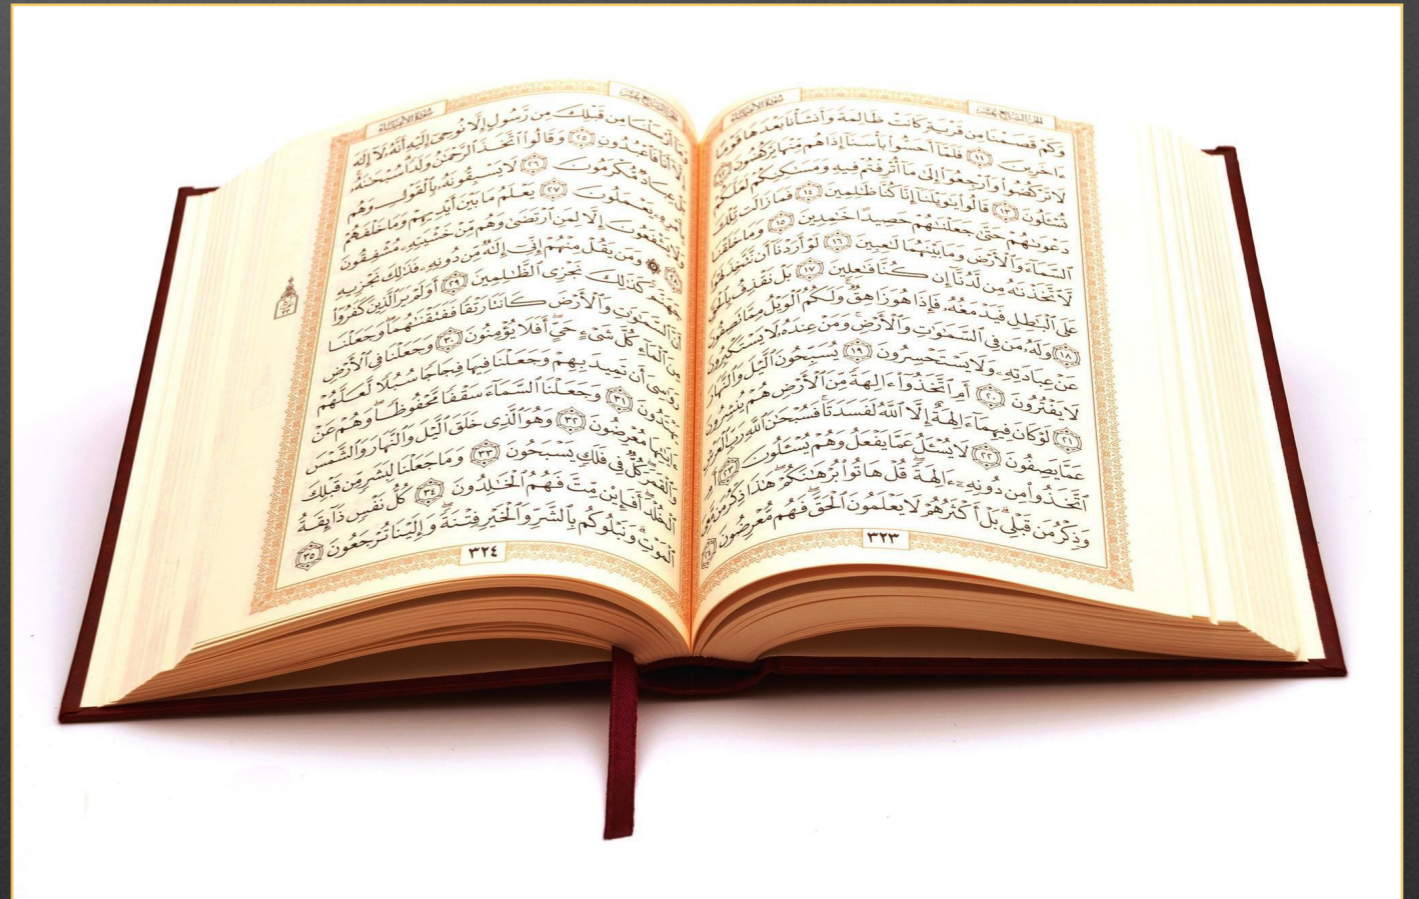 الجزء السابع عشر
سورة الأنبياء
وَكَمْ قَصَمْنَا مِن قَرْيَةٍ كَانَتْ ظَالِمَةً وَأَنشَأْنَا بَعْدَهَا قَوْمًا
ءَاخَرِينَ ١١ فَلَمَّا أَحَسُّوا۟ بَأْسَنَآ إِذَا هُم مِّنْهَا يَرْكُضُونَ ١٢
لَا تَرْكُضُوا۟ وَٱرْجِعُوٓا۟ إِلَىٰ مَآ أُتْرِفْتُمْ فِيهِ وَمَسَٰكِنِكُمْ لَعَلَّكُمْ
تُسْـَٔلُونَ ١٣ قَالُوا۟ يَٰوَيْلَنَآ إِنَّا كُنَّا ظَٰلِمِينَ ١٤ فَمَا زَالَت تِّلْكَ
دَعْوَىٰهُمْ حَتَّىٰ جَعَلْنَٰهُمْ حَصِيدًا خَٰمِدِينَ ١٥ وَمَا خَلَقْنَا
ٱلسَّمَآءَ وَٱلْأَرْضَ وَمَا بَيْنَهُمَا لَٰعِبِينَ ١٦ لَوْ أَرَدْنَآ أَن نَّتَّخِذَ لَهْوًا
لَّٱتَّخَذْنَٰهُ مِن لَّدُنَّآ إِن كُنَّا فَٰعِلِينَ ١٧ بَلْ نَقْذِفُ بِٱلْحَقِّ
عَلَى ٱلْبَٰطِلِ فَيَدْمَغُهُۥ فَإِذَا هُوَ زَاهِقٌ ۚ وَلَكُمُ ٱلْوَيْلُ مِمَّا تَصِفُونَ
١٨ وَلَهُۥ مَن فِى ٱلسَّمَٰوَٰتِ وَٱلْأَرْضِ ۚ وَمَنْ عِندَهُۥ لَا يَسْتَكْبِرُونَ
عَنْ عِبَادَتِهِۦ وَلَا يَسْتَحْسِرُونَ ١٩ يُسَبِّحُونَ ٱلَّيْلَ وَٱلنَّهَارَ
لَا يَفْتُرُونَ ٢٠ أَمِ ٱتَّخَذُوٓا۟ ءَالِهَةً مِّنَ ٱلْأَرْضِ هُمْ يُنشِرُونَ
٢١ لَوْ كَانَ فِيهِمَآ ءَالِهَةٌ إِلَّا ٱللَّهُ لَفَسَدَتَا ۚ فَسُبْحَٰنَ ٱللَّهِ رَبِّ ٱلْعَرْشِ
عَمَّا يَصِفُونَ ٢٢ لَا يُسْـَٔلُ عَمَّا يَفْعَلُ وَهُمْ يُسْـَٔلُونَ ٢٣ أَمِ
ٱتَّخَذُوا۟ مِن دُونِهِۦٓ ءَالِهَةً ۖ قُلْ هَاتُوا۟ بُرْهَٰنَكُمْ ۖ هَٰذَا ذِكْرُ مَن مَّعِىَ
وَذِكْرُ مَن قَبْلِى ۗ بَلْ أَكْثَرُهُمْ لَا يَعْلَمُونَ ٱلْحَقَّ ۖ فَهُم مُّعْرِضُونَ ٢٤
٣٢٣
الجزء السابع عشر
سورة الأنبياء
وَمَآ أَرْسَلْنَا مِن قَبْلِكَ مِن رَّسُولٍ إِلَّا نُوحِىٓ إِلَيْهِ أَنَّهُۥ لَآ إِلَٰهَ
إِلَّآ أَنَا۠ فَٱعْبُدُونِ ٢٥ وَقَالُوا۟ ٱتَّخَذَ ٱلرَّحْمَٰنُ وَلَدًا ۗ سُبْحَٰنَهُۥ ۚ
بَلْ عِبَادٌ مُّكْرَمُونَ ٢٦ لَا يَسْبِقُونَهُۥ بِٱلْقَوْلِ وَهُم
بِأَمْرِهِۦ يَعْمَلُونَ ٢٧ يَعْلَمُ مَا بَيْنَ أَيْدِيهِمْ وَمَا خَلْفَهُمْ
وَلَا يَشْفَعُونَ إِلَّا لِمَنِ ٱرْتَضَىٰ وَهُم مِّنْ خَشْيَتِهِۦ مُشْفِقُونَ
٢٨ ۞ وَمَن يَقُلْ مِنْهُمْ إِنِّىٓ إِلَٰهٌ مِّن دُونِهِۦ فَذَٰلِكَ نَجْزِيهِ
جَهَنَّمَ ۚ كَذَٰلِكَ نَجْزِى ٱلظَّٰلِمِينَ ٢٩ أَوَلَمْ يَرَ ٱلَّذِينَ كَفَرُوٓا۟
أَنَّ ٱلسَّمَٰوَٰتِ وَٱلْأَرْضَ كَانَتَا رَتْقًا فَفَتَقْنَٰهُمَا ۖ وَجَعَلْنَا
مِنَ ٱلْمَآءِ كُلَّ شَىْءٍ حَىٍّ ۖ أَفَلَا يُؤْمِنُونَ ٣٠ وَجَعَلْنَا فِى ٱلْأَرْضِ
رَوَٰسِىَ أَن تَمِيدَ بِهِمْ وَجَعَلْنَا فِيهَا فِجَاجًا سُبُلًا لَّعَلَّهُمْ
يَهْتَدُونَ ٣١ وَجَعَلْنَا ٱلسَّمَآءَ سَقْفًا مَّحْفُوظًا ۖ وَهُمْ عَنْ
ءَايَٰتِهَا مُعْرِضُونَ ٣٢ وَهُوَ ٱلَّذِى خَلَقَ ٱلَّيْلَ وَٱلنَّهَارَ وَٱلشَّمْسَ
وَٱلْقَمَرَ ۖ كُلٌّ فِى فَلَكٍ يَسْبَحُونَ ٣٣ وَمَا جَعَلْنَا لِبَشَرٍ مِّن قَبْلِكَ
ٱلْخُلْدَ ۖ أَفَإِي۟ن مِّتَّ فَهُمُ ٱلْخَٰلِدُونَ ٣٤ كُلُّ نَفْسٍ ذَآئِقَةُ
ٱلْمَوْتِ ۗ وَنَبْلُوكُم بِٱلشَّرِّ وَٱلْخَيْرِ فِتْنَةً ۖ وَإِلَيْنَا تُرْجَعُونَ ٣٥
٣٢٤